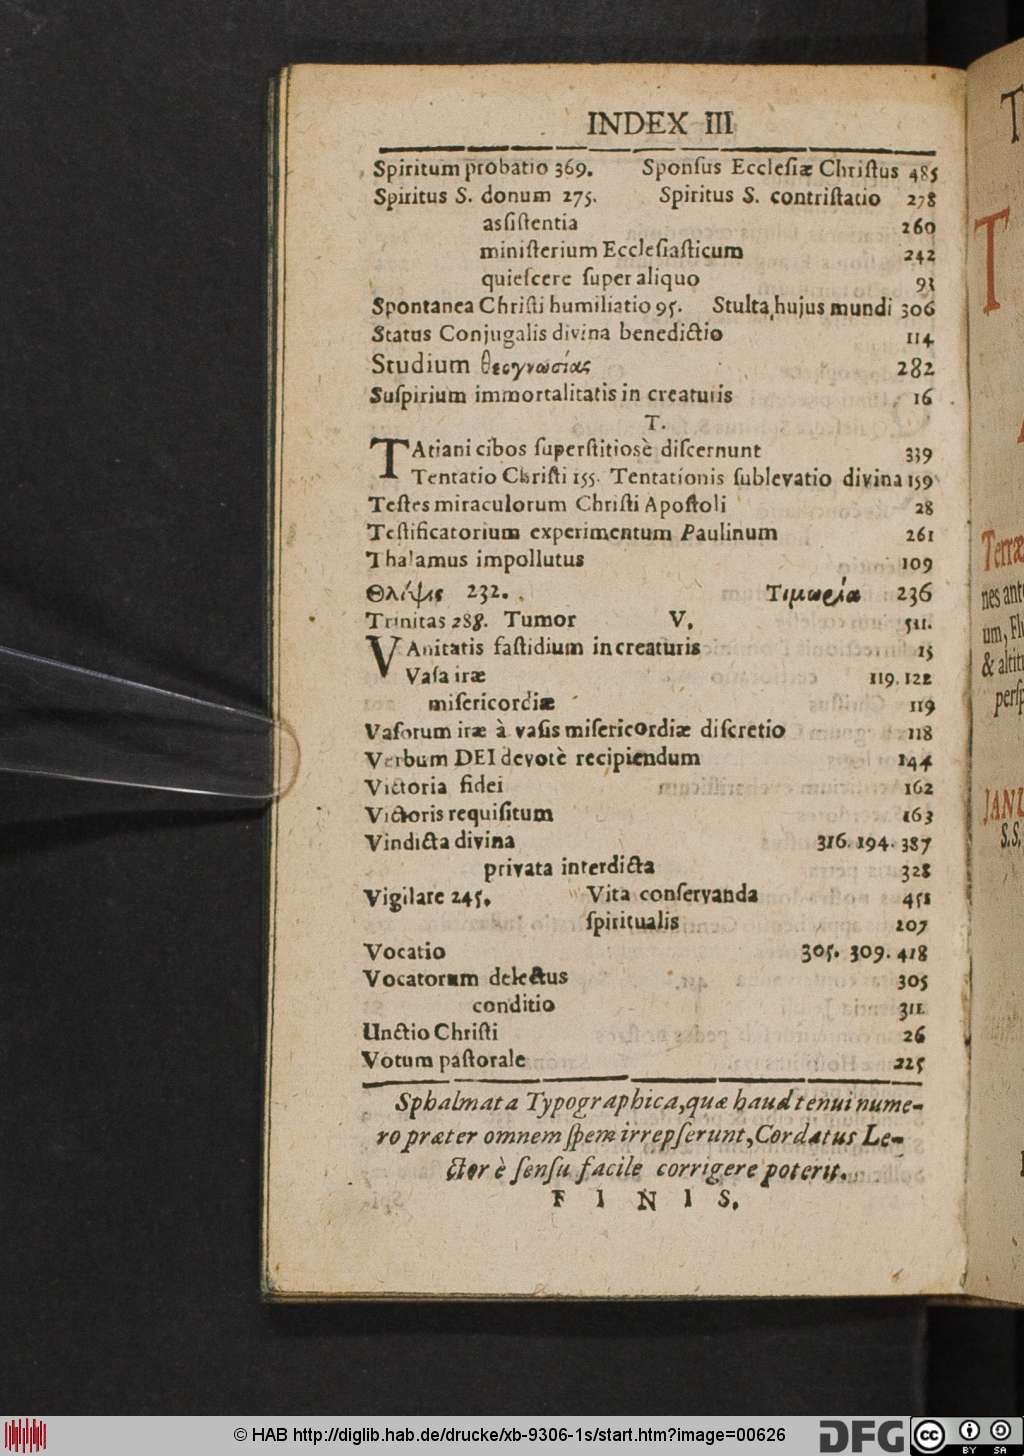 INDEX III
Spiritum probatio 369. Sponſus Eccleſiæ Chriſtus 485
Spiritus S. donum 275. Spiritus S. contriſtatio 278
asſiſtentia 260
miniſterium Eccleſiaſticum 242
quieſcere ſuper aliquo 93
Spontanea Chriſti humiliatio 95. Stulta hujus mundi 306
Status Conjugalis divina benedictio 114
Studium θεογνωσίας 282
Suſpirium immortalitatis in creaturis 16
T.
TAtiani cibos ſuperſtitiosè diſcernunt 339
Tentatio Chriſti 155. Tentationis ſublevatio divina 159
Teſtes miraculorum Chriſti Apoſtoli 28
Teſtificatorium experimentum Paulinum 261
Thalamus impollutus 109
Θλίψις 232. Τιμωρία 236
Trinitas 288. Tumor V. 511.
VAnitatis faſtidium in creaturis 15
Vaſa iræ 119. 122
miſericordiæ 119
Vaſorum iræ à vaſis miſericordiæ diſcretio 118
Verbum DEI devotè recipiendum 144
Victoria fidei 162
Victoris requiſitum 163
Vindicta divina 316. 194. 387
privata interdicta 328
Vigilare 245. Vita conſervanda 451
ſpiritualis 207
Vocatio 305. 309. 418
Vocatorum delectus 305
conditio 311
Unctio Chriſti 26
Votum paſtorale 225
Sphalmata Typographica, quæ haud tenui nume-
ro præter omnem ſpem irrepſerunt, Cordatus Le-
ctor è ſenſu facile corrigere poterit.
FINIS.
T
T
Terræ
nes ant
um, Fl
& altit
perſp
JANU
S.S.
© HAB http://diglib.hab.de/drucke/xb-9306-1s/start.htm?image=00626
DFG
cc
BY SA